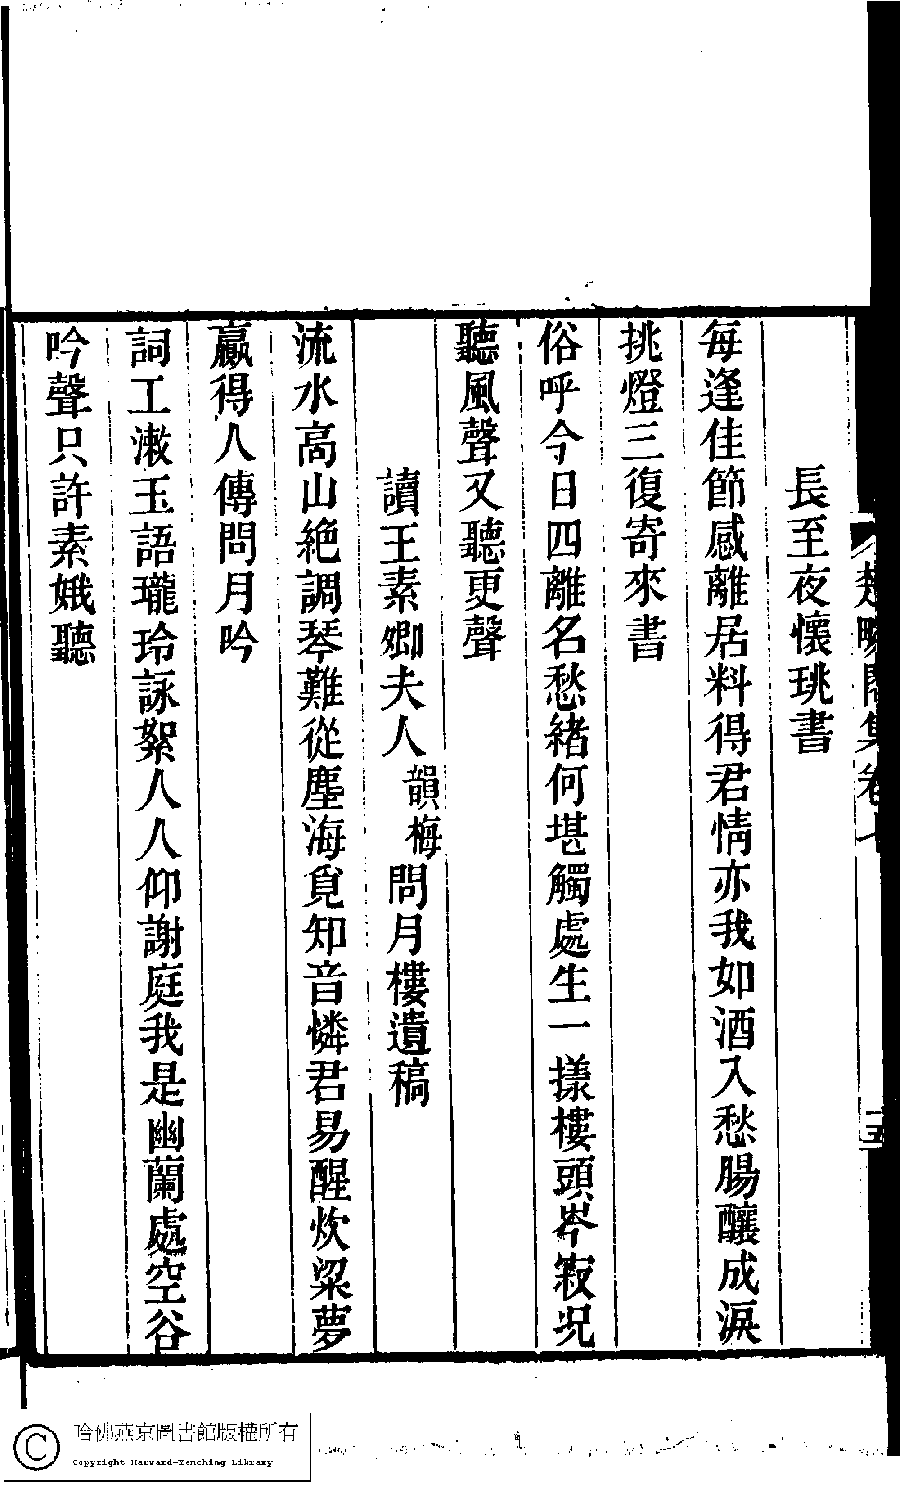 長至夜懷珧書
每逢佳節感離居料得君情亦我如酒入愁腸釀成淚
挑燈三復寄來書
俗呼今日四離名愁緒何堪觸處生一㨾樓頭岑寂况
聽風聲又聽更聲
讀王素卿夫人韻梅問月樓遺稿
流水高山絶調琴難從塵海覓知音憐君易醒炊粱夢
贏得人傳問月吟
詞工漱玉語瓏玲詠絮人人仰謝庭我是幽蘭處空谷
吟聲只許素娥聽
集卷七
哈佛燕京圖書館版權所有
Copyright Harvard-Yenching Library